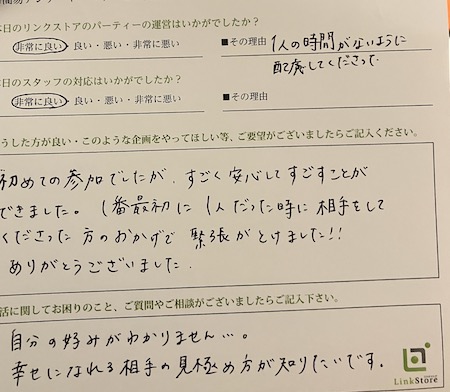 本日のリンクストアのパーティーの運営はいかがでしたか？
非常に良い・良い・悪い・非常に悪い
■その理由 1人の時間がないように
配慮してくださった
本日のスタッフの対応はいかがでしたか？
非常に良い・良い・悪い・非常に悪い
■その理由
うした方が良い・このような企画をやってほしい等、ご要望がございましたらご記入ください。
初めての参加でしたが、すごく安心してすごすことが
できました。1番最初に1人だった時に相手をして
くださった方のおかげで緊張がとけました!!
ありがとうございました.
活に関してお困りのこと、ご質問やご相談がございましたらご記入下さい。
自分の好みがわかりません…。
幸せになれる相手の見極め方が知りたいです.
LinkStore